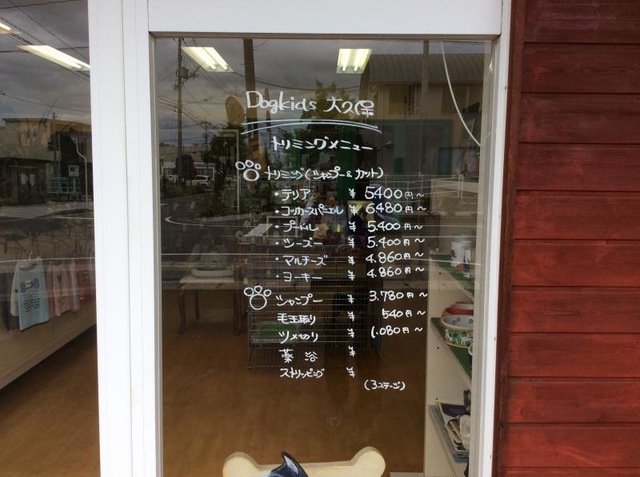 Dogkids 大久保
トリミングメニュー
トリミング(シャンプー&カット)
・テリア ¥ 5400円〜
・コッカースパニエル ¥ 6480円〜
・プードル ¥ 5.400円〜
・シーズー ¥ 5.400円〜
・マルチーズ ¥ 4.860円〜
・ヨーキー ¥ 4.860円〜
シャンプー ¥ 3.780円〜
毛玉取り ¥ 540円〜
ツメ切り ¥ 1.080円〜
薬浴 ¥
ストリッピング ¥
(3ステージ)